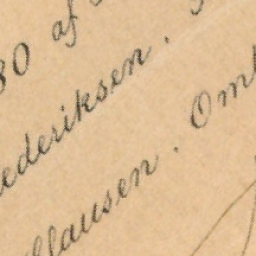 80 af
ederiksen.
llausen. Om